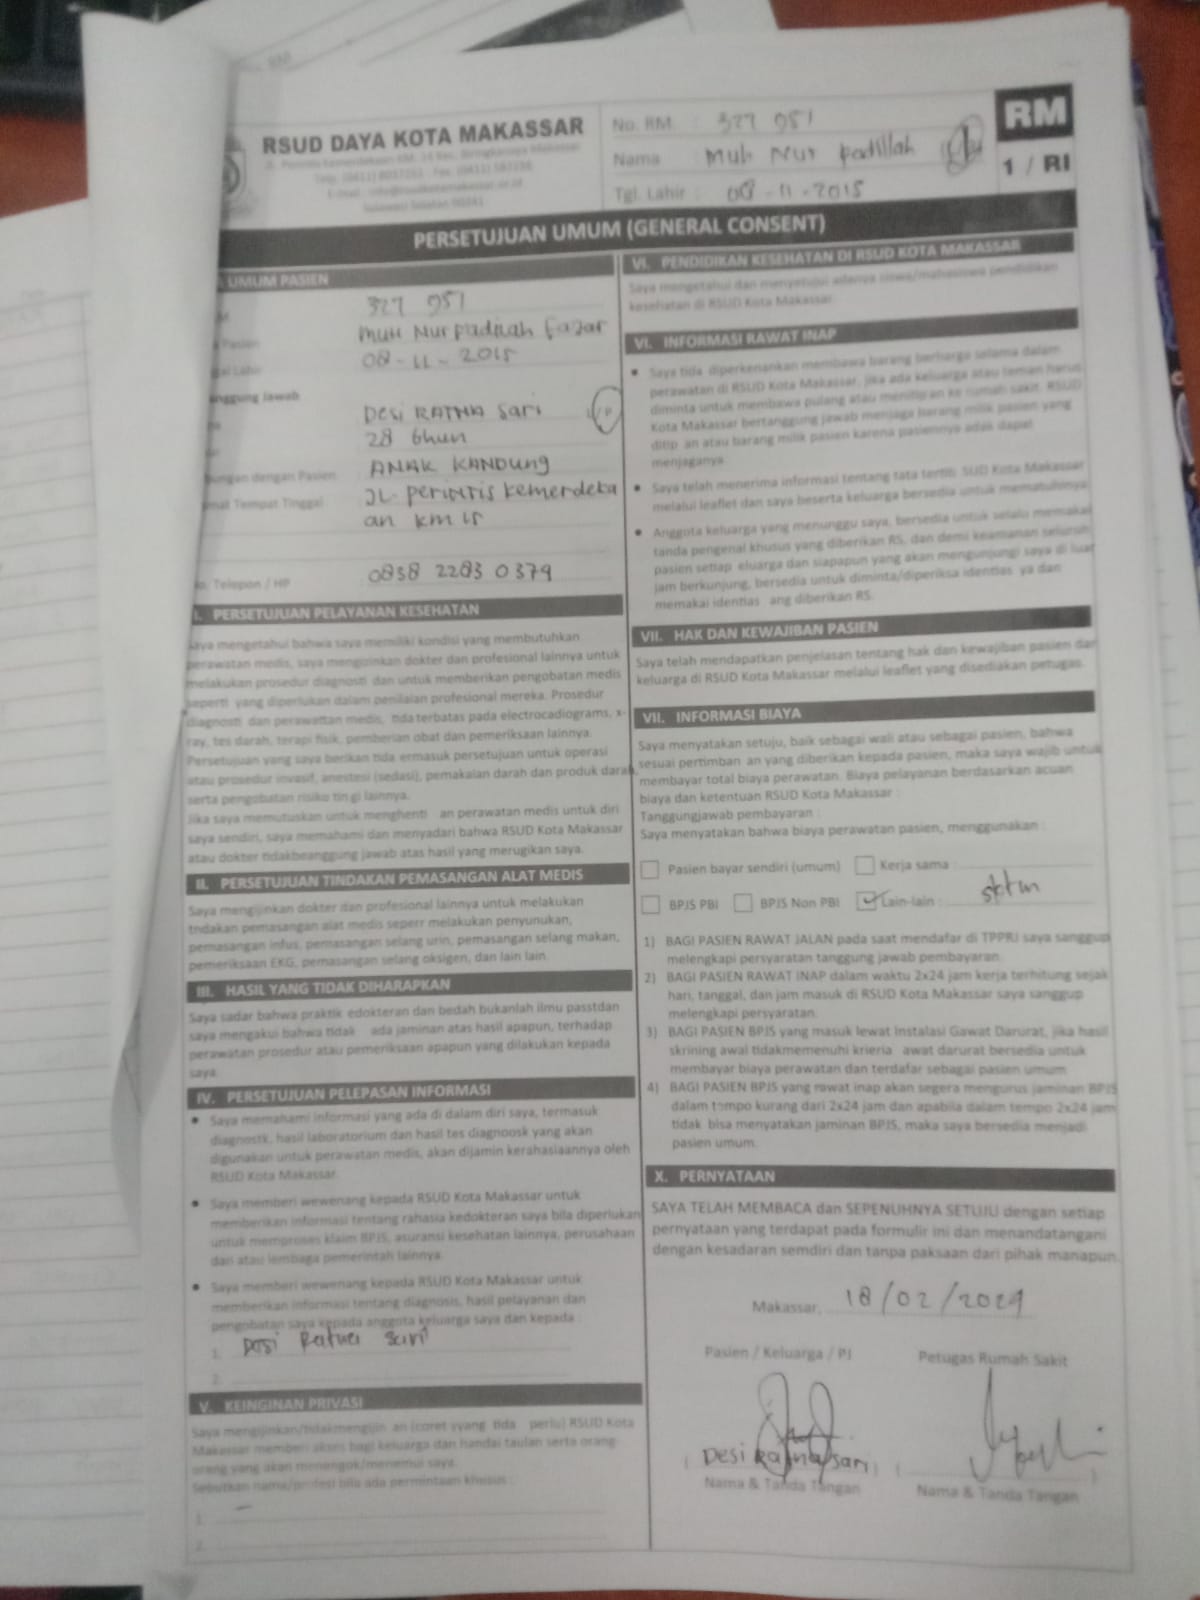 RSUD DAYA KOTA MAKASSAR
No. RM. : 327 951
Nama : Muh Nur Padillah
Tgl. Lahir : 08-11-2015
RM
1 / RI
PERSETUJUAN UMUM (GENERAL CONSENT)
UMUM PASIEN
327 951
Pasien Muh Nur Padillah Fajar
Lahir 08-11-2015
Desi RATNA Sari
28
dengan Pasien ANAK KANDUNG
Tempat Tinggal JL. perintis kemerdeka
an km 15
Telepon / HP 0838 2283 0379
I. PERSETUJUAN PELAYANAN KESEHATAN
Saya mengetahui bahwa saya memiliki kondisi yang membutuhkan
perawatan medis, saya mengizinkan dokter dan profesional lainnya untuk
melakukan prosedur diagnosti dan untuk memberikan pengobatan medis
seperti yang diperlukan dalam penilaian profesional mereka. Prosedur
diagnosti dan perawattan medis, tida terbatas pada electrocadiograms, x-
ray, tes darah, terapi fisik, pemberian obat dan pemeriksaan lainnya.
Persetujuan yang saya berikan tida ermasuk persetujuan untuk operasi
atau prosedur invasif, anestesi (sedasi), pemakaian darah dan produk darah,
serta pengobatan risiko tin gi lainnya.
Jika saya memutuskan untuk menghenti an perawatan medis untuk diri
saya sendiri, saya memahami dan menyadari bahwa RSUD Kota Makassar
atau dokter tidakbeanggung jawab atas hasil yang merugikan saya.
II. PERSETUJUAN TINDAKAN PEMASANGAN ALAT MEDIS
Saya mengijinkan dokter dan profesional lainnya untuk melakukan
tndakan pemasangan alat medis seperr melakukan penyunukan,
pemasangan infus, pemasangan selang urin, pemasangan selang makan,
pemeriksaan EKG, pemasangan selang oksigen, dan lain lain.
III. HASIL YANG TIDAK DIHARAPKAN
Saya sadar bahwa praktik edokteran dan bedah bukanlah ilmu passtdan
saya mengakui bahwa tidak ada jaminan atas hasil apapun, terhadap
perawatan prosedur atau pemeriksaan apapun yang dilakukan kepada
saya.
IV. PERSETUJUAN PELEPASAN INFORMASI
• Saya memahami informasi yang ada di dalam diri saya, termasuk
diagnostk, hasil laboratorium dan hasil tes diagnoosk yang akan
digunakan untuk perawatan medis, akan dijamin kerahasiaannya oleh
RSUD Kota Makassar.
• Saya memberi wewenang kepada RSUD Kota Makassar untuk
memberikan informasi tentang rahasia kedokteran saya bila diperlukan
untuk memproses klaim BPJS, asuransi kesehatan lainnya, perusahaan
dan atau lembaga pemerintah lainnya.
• Saya memberi wewenang kepada RSUD Kota Makassar untuk
memberikan informasi tentang diagnosis, hasil pelayanan dan
pengobatan saya kepada anggota keluarga saya dan kepada :
1. Desi Ratna Sari
2.
V. KEINGINAN PRIVASI
Saya mengijinkan/tidakmengijin an (coret yyang tida perlu) RSUD Kota
Makassar memberi akses bagi keluarga dan handai taulan serta orang-
orang yang akan menengok/menemui saya.
Sebutkan nama/profesi bila ada permintaan khusus :
1. -
2.
VI. PENDIDIKAN KESEHATAN DI RSUD KOTA MAKASSAR
Saya mengetahui dan menyetujui adanya siswa/mahasiswa pendidikan
kesehatan di RSUD Kota Makassar.
VI. INFORMASI RAWAT INAP
• Saya tida diperkenankan membawa barang berharga selama dalam
perawatan di RSUD Kota Makassar, jika ada keluarga atau teman harus
diminta untuk membawa pulang atau menitipan ke rumah sakit. RSUD
Kota Makassar bertanggung jawab menjaga barang milik pasien yang
ditip an atau barang milik pasien karena pasiennya adak dapat
menjaganya.
• Saya telah menerima informasi tentang tata tertib SUD Kota Makassar
melalui leaflet dan saya beserta keluarga bersedia untuk mematuhinya
• Anggota keluarga yang menunggu saya, bersedia untuk selalu memakai
tanda pengenal khusus yang diberikan RS, dan demi keamanan seluruh
pasien setiap eluarga dan siapapun yang akan mengunjungi saya di luar
jam berkunjung, bersedia untuk diminta/diperiksa identias ya dan
memakai identias ang diberikan RS.
VII. HAK DAN KEWAJIBAN PASIEN
Saya telah mendapatkan penjelasan tentang hak dan kewajiban pasien dan
keluarga di RSUD Kota Makassar melalui leaflet yang disediakan petugas.
VII. INFORMASI BIAYA
Saya menyatakan setuju, baik sebagai wali atau sebagai pasien, bahwa
sesuai pertimban an yang diberikan kepada pasien, maka saya wajib untuk
membayar total biaya perawatan. Biaya pelayanan berdasarkan acuan
biaya dan ketentuan RSUD Kota Makassar :
Tanggungjawab pembayaran :
Saya menyatakan bahwa biaya perawatan pasien, menggunakan :
Pasien bayar sendiri (umum) Kerja sama :
BPJS PBI BPJS Non PBI Lain-lain : sktm
1) BAGI PASIEN RAWAT JALAN pada saat mendafar di TPPRJ saya sanggup
melengkapi persyaratan tanggung jawab pembayaran.
2) BAGI PASIEN RAWAT INAP dalam waktu 2x24 jam kerja terhitung sejak
hari, tanggal, dan jam masuk di RSUD Kota Makassar saya sanggup
melengkapi persyaratan.
3) BAGI PASIEN BPJS yang masuk lewat Instalasi Gawat Darurat, jika hasil
skrining awal tidakmemenuhi krieria awat darurat bersedia untuk
membayar biaya perawatan dan terdafar sebagai pasien umum
4) BAGI PASIEN BPJS yang rawat inap akan segera mengurus jaminan BPJS
dalam tempo kurang dari 2x24 jam dan apabila dalam tempo 2x24 jam
tidak bisa menyatakan jaminan BPJS, maka saya bersedia menjadi
pasien umum.
X. PERNYATAAN
SAYA TELAH MEMBACA dan SEPENUHNYA SETUJU dengan setiap
pernyataan yang terdapat pada formulir ini dan menandatangani
dengan kesadaran semdiri dan tanpa paksaan dari pihak manapun.
Makassar, 18/02/2029
Pasien / Keluarga / PJ Petugas Rumah Sakit
( Desi Ratna sari ) ( )
Nama & Tanda Tangan Nama & Tanda Tangan